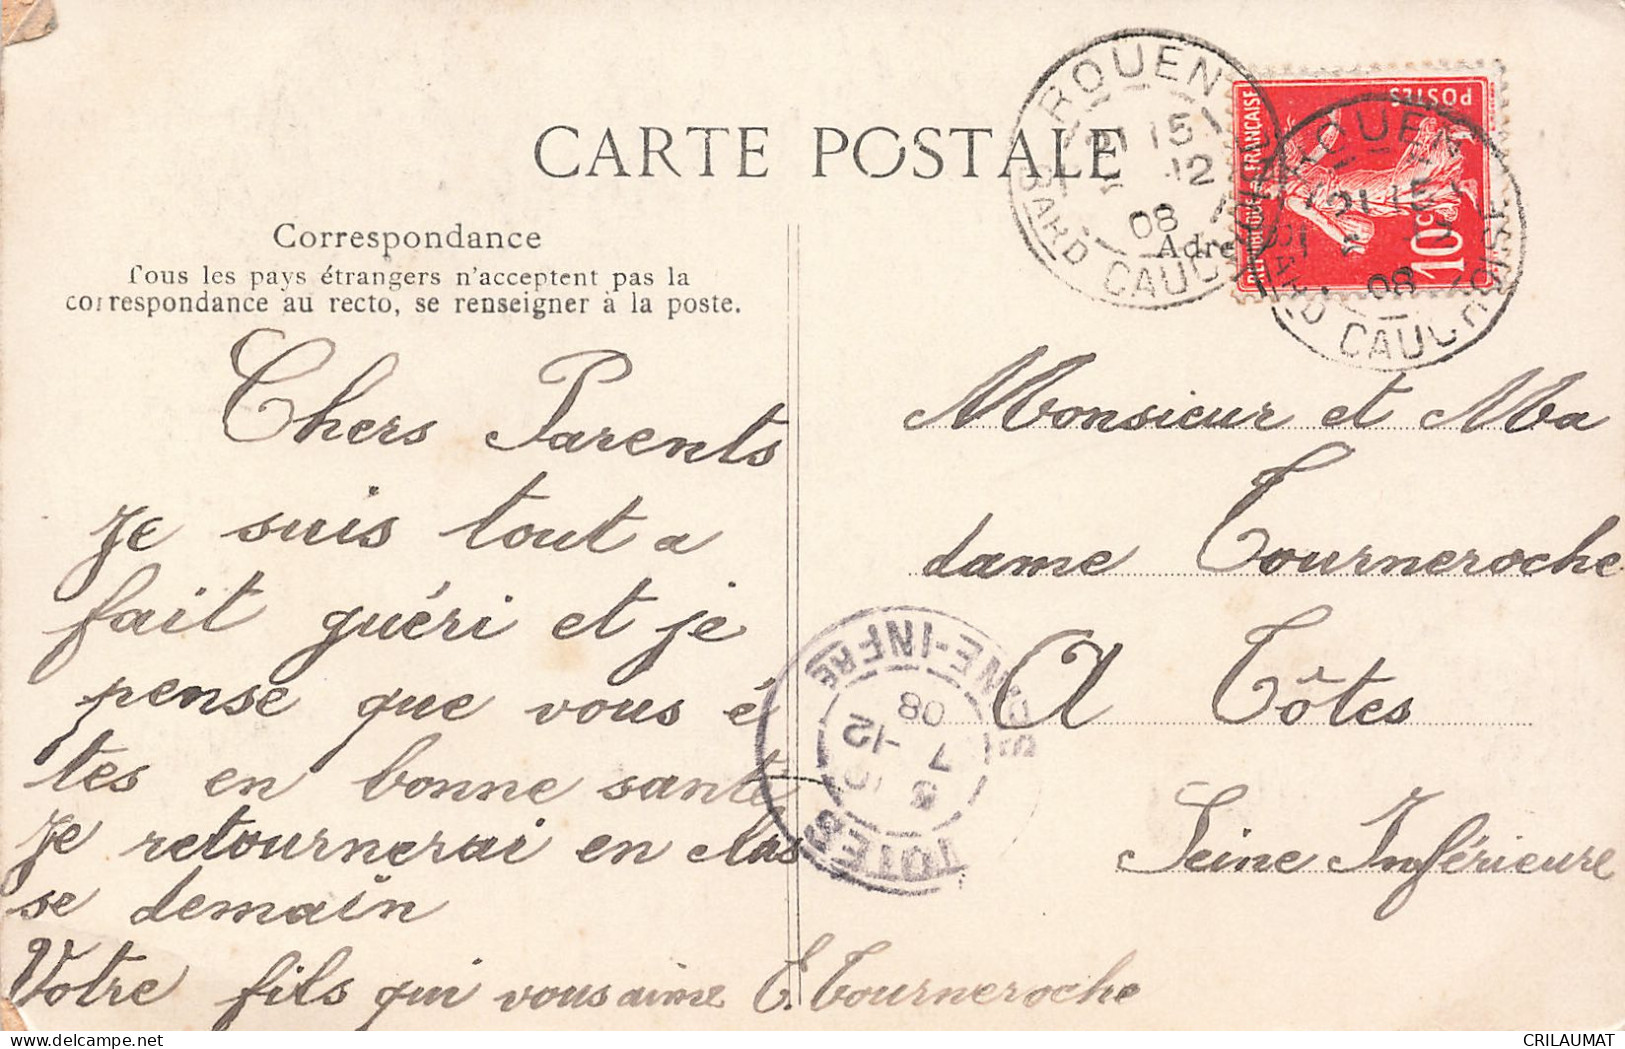 CARTE POSTALE
Correspondance
Tous les pays étrangers n'acceptent pas la
correspondance au recto, se renseigner à la poste.
Chers Parents
Je suis tout a
fait guéri et je
pense que vous ê
tes en bonne santé
Je retournerai en clas
se demain
Votre fils qui vous aime E. Tourneroche
ROUEN
21 15
12
08
BARD CAUCHOISE
POSTES
REPUBLIQUE FRANÇAISE
10c
ROUEN
21 15
08
BARD CAUCHOISE
Monsieur et Ma
dame Tourneroche
A Tôtes
Seine Inférieure
TOTES
7 -12
08
SEINE-INFRE
CRILAUMAT